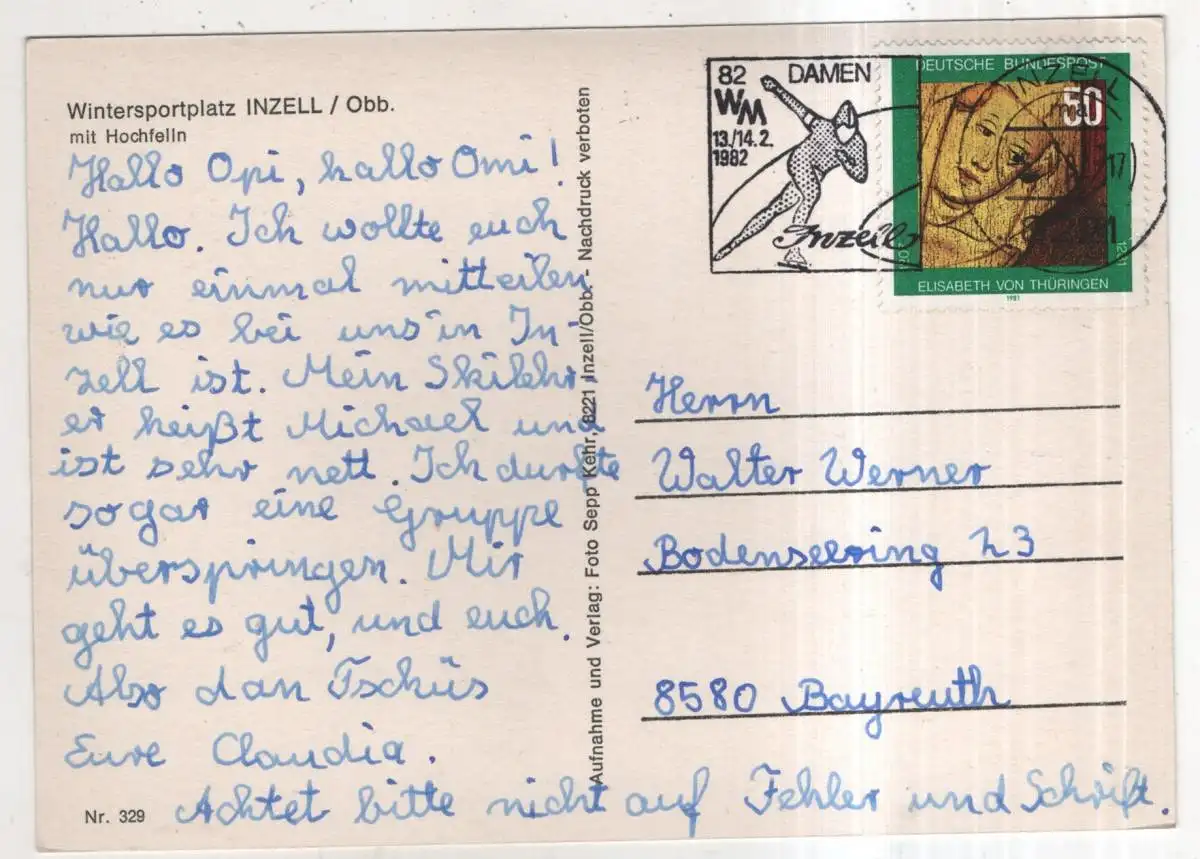 Wintersportplatz INZELL / Obb.
mit Hochfelln
Hallo Opi, hallo Omi!
Hallo. Ich wollte euch
nur einmal mitteilen
wie es bei uns in In-
zell ist. Mein Skilehr
er heißt Michael und
ist sehr nett. Ich durfte
sogar eine Gruppe
überspringen. Mir
geht es gut, und euch.
Also dan Tschüs
Eure Claudia.
Achtet bitte nicht auf Fehler und Schrift.
Nr. 329
Aufnahme und Verlag: Foto Sepp Kehr, 8221 Inzell/Obb. - Nachdruck verboten
82 DAMEN
WM
13./14.2.
1982
Inzell
DEUTSCHE BUNDESPOST
50
INZELL
17
ELISABETH VON THÜRINGEN
1981
Herrn
Walter Werner
Bodenseering 23
8580 Bayreuth